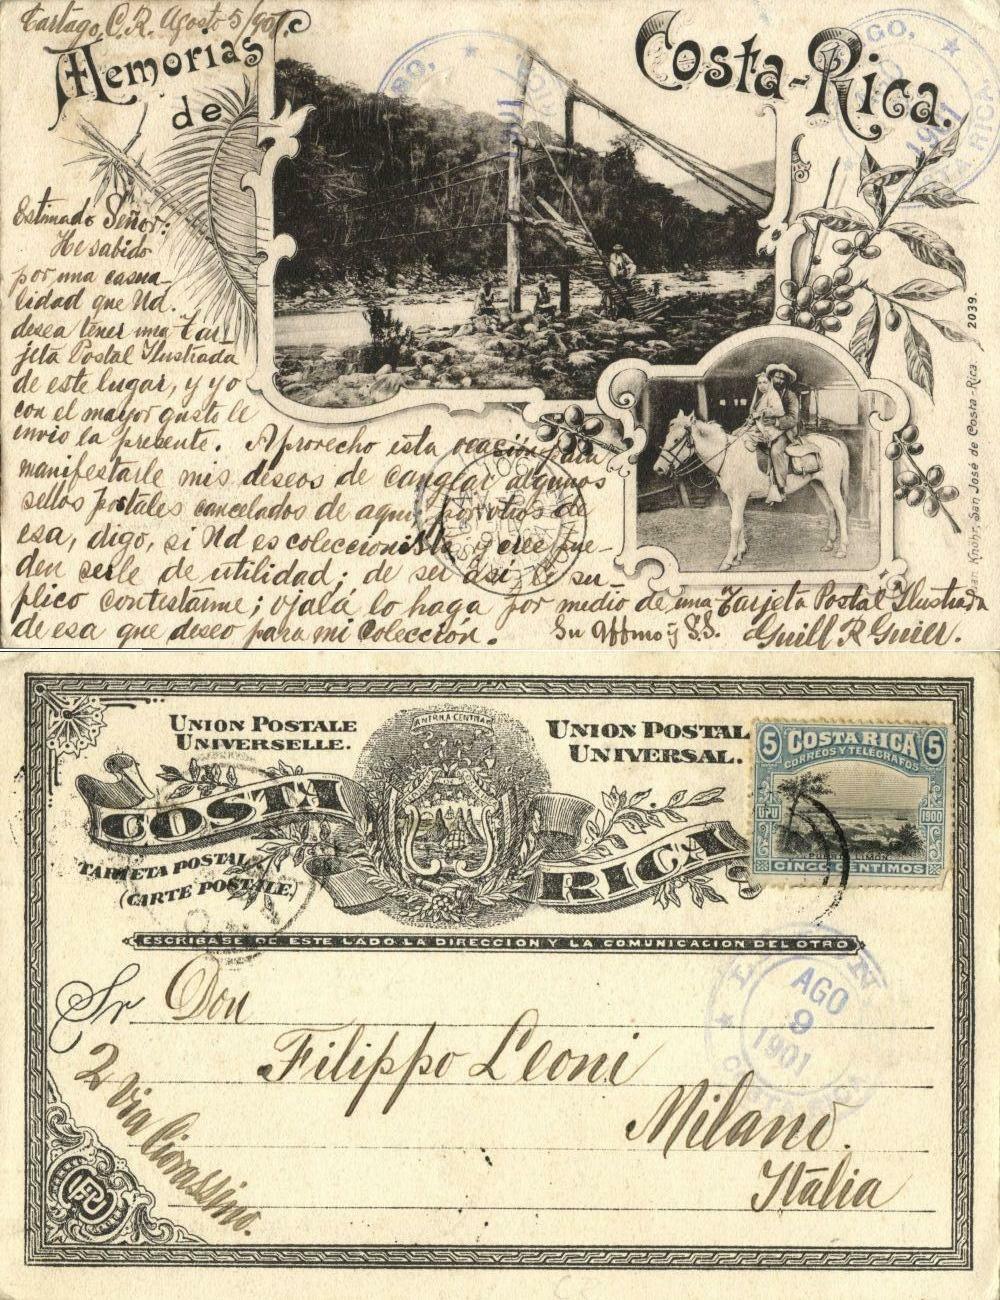 Cartago, C.R. Agosto 5/901.
Memorias
de
Costa-Rica.
Estimado Señor:
He sabido
por una casua-
lidad que Ud.
desea tener una Tar-
jeta Postal Ilustrada
de este lugar, y yo
con el mayor gusto le
envio la presente. Aprovecho esta ocasión para
manifestarle mis deseos de cangear algunos
sellos postales cancelados de aqui por otros de
esa, digo, si Ud es coleccionista y cree pue-
den serle de utilidad; de ser así le su-
plico contestarme; ojalá lo haga por medio de una Tarjeta Postal Ilustrada
de esa que deseo para mi colección.
Su Affmo y S.S. Guill R Guier.
Juan Knöhr, San José de Costa-Rica. 2039.
1901
UNION POSTALE
UNIVERSELLE.
UNION POSTAL
UNIVERSAL.
AMERICA CENTRAL
COSTA RICA
TARJETA POSTAL
(CARTE POSTALE)
5 COSTA RICA 5
CORREOS Y TELEGRAFOS
UPU 1900
CINCO CENTIMOS
ESCRIBASE DE ESTE LADO LA DIRECCION Y LA COMUNICACION DEL OTRO
LIMON
AGO
9
1901
COSTA RICA
Sr Don
Filippo Leoni
Milano.
Itália
2 Via Ciovassino.